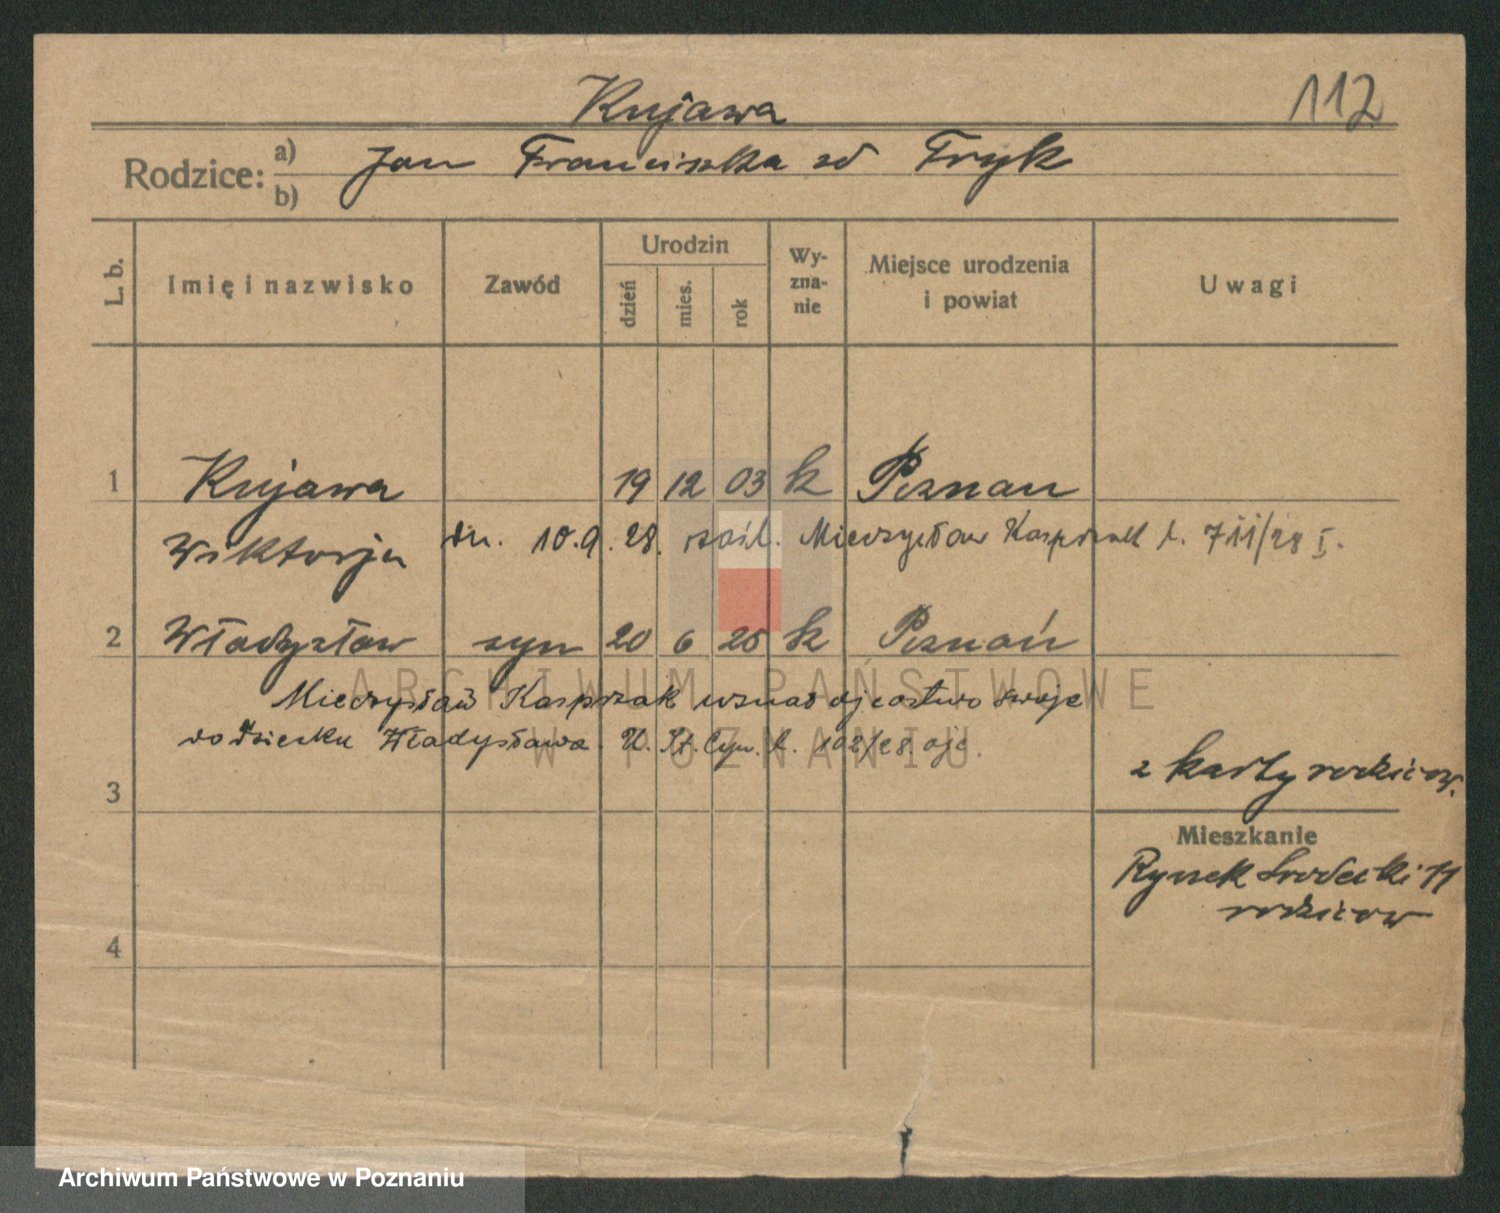 Kujawa
112
Rodzice: a) Jan Franciszka zd Fryk
b)
L. b. Imię i nazwisko Zawód Urodzin dzień mies. rok Wy-zna-nie Miejsce urodzenia i powiat Uwagi
1 Kujawa 19 12 03 k Poznan
Wiktorja dn. 10.9.28. zaśl. Mieczysław Kasprzak l. 711/28 I.
2 Władysław syn 20 6 25 k Poznań
ARCHIWUM PAŃSTWOWE
Mieczysław Kasprzak uznał ojcostwo swoje
do dziecka Władysława. U. St. Cyw. l. 102/28.
W POZNANIU
z karty rodziców.
3
Mieszkanie
Rynek Srodecki 11
rodziców
4
Archiwum Państwowe w Poznaniu